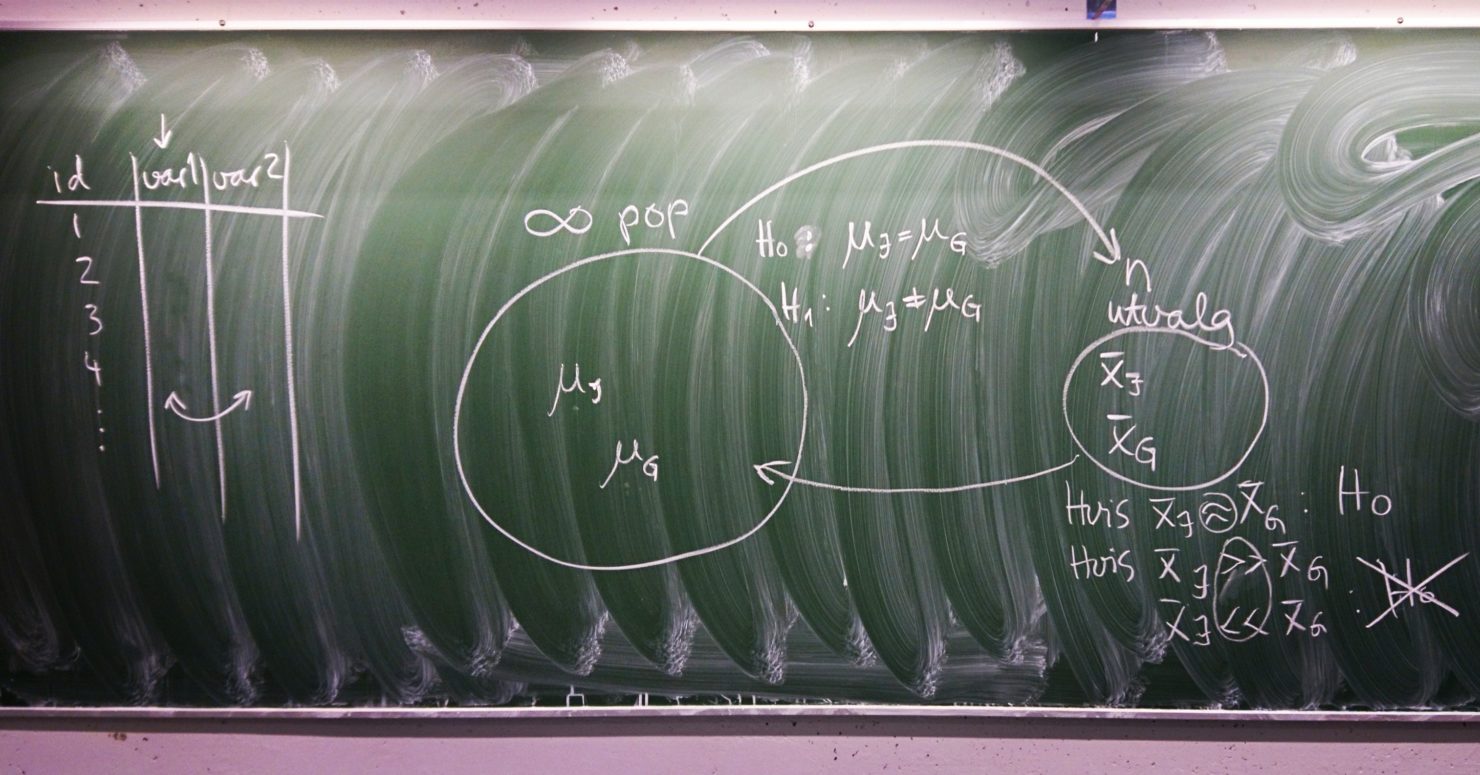 id var1 var2
1
2
3
4
⋮
∞ pop
μJ
μG
H0: μJ=μG
H1: μJ≠μG
n
utvalg
x̄J
x̄G
Hvis x̄J ≈ x̄G : H0
Hvis x̄J >> x̄G
x̄J << x̄G : H0